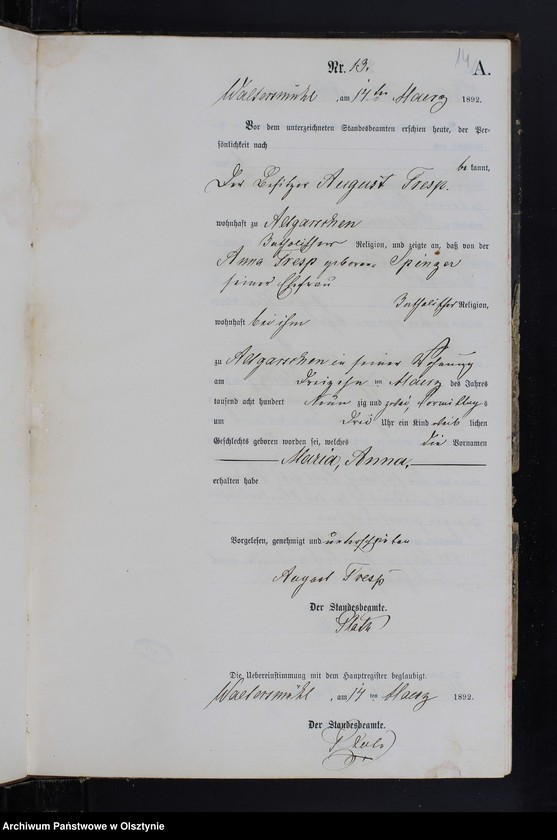 14
Nr. 13. A.
Waltersmühl, am 14ten Maerz 1892.
Vor dem unterzeichneten Standesbeamten erschien heute, der Per-
sönlichkeit nach
be kannt,
Der Besitzer August Tresp.
wohnhaft zu Adgarschen
katholischer Religion, und zeigte an, daß von der
Anna Tresp geborene Spinger
seiner Ehefrau
katholischer Religion,
wohnhaft bei ihm
zu Adgarschen in seiner Wohnung
am dreizehn ten Maerz des Jahres
tausend acht hundert neun zig und zwei, Vormittags
um drei Uhr ein Kind weib lichen
Geschlechts geboren worden sei, welches die Vornamen
Maria, Anna,
erhalten habe
Vorgelesen, genehmigt und unterschrieben
August Tresp
Der Standesbeamte.
Die Uebereinstimmung mit dem Hauptregister beglaubigt.
Waltersmühl, am 14 ten Maerz 1892.
Der Standesbeamte.
Archiwum Państwowe w Olsztynie